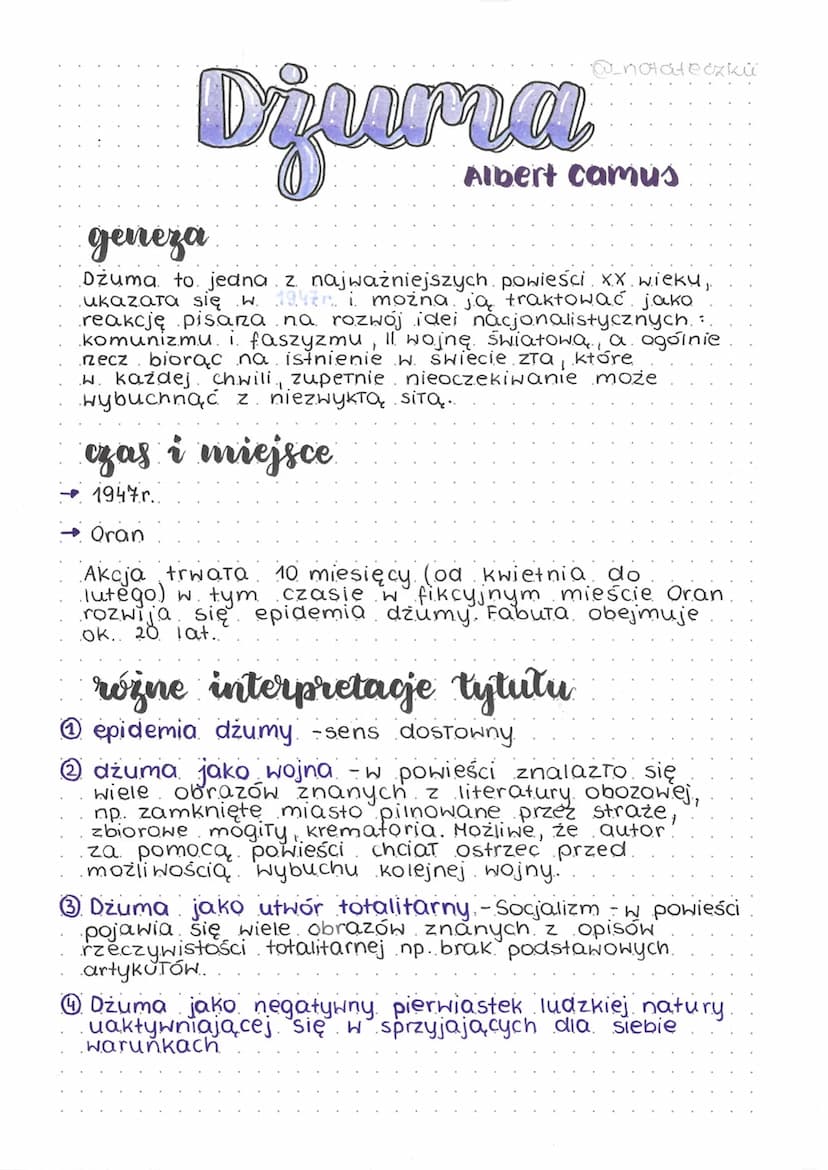 @_notateczkii
Dżuma
Albert Camus
geneza
Dżuma to jedna z najważniejszych powieści XX wieku,
ukazała się w 1947r. i można ją traktować jako
reakcję pisarza na rozwój idei nacjonalistycznych:
komunizmu i faszyzmu, II wojnę światową, a ogólnie
rzecz biorąc na istnienie w świecie zła, które
w każdej chwili, zupełnie nieoczekiwanie może
wybuchnąć z niezwykłą siłą.
czas i miejsce
→ 1947r.
→ Oran
Akcja trwała 10 miesięcy (od kwietnia do
lutego) w tym czasie w fikcyjnym mieście Oran
rozwija się epidemia dżumy. Fabuła obejmuje
ok. 20 lat.
różne interpretacje tytułu
① epidemia dżumy - sens dosłowny
② dżuma jako wojna - w powieści znalazło się
wiele obrazów znanych z literatury obozowej,
np. zamknięte miasto pilnowane przez straże,
zbiorowe mogiły, krematoria. Możliwe, że autor
za pomocą powieści chciał ostrzec przed
możliwością wybuchu kolejnej wojny.
③ Dżuma jako utwór totalitarny - Socjalizm - w powieści
pojawia się wiele obrazów znanych z opisów
rzeczywistości totalitarnej np. brak podstawowych
artykułów.
④ Dżuma jako negatywny pierwiastek ludzkiej natury
uaktywniającej się w sprzyjających dla siebie
warunkach